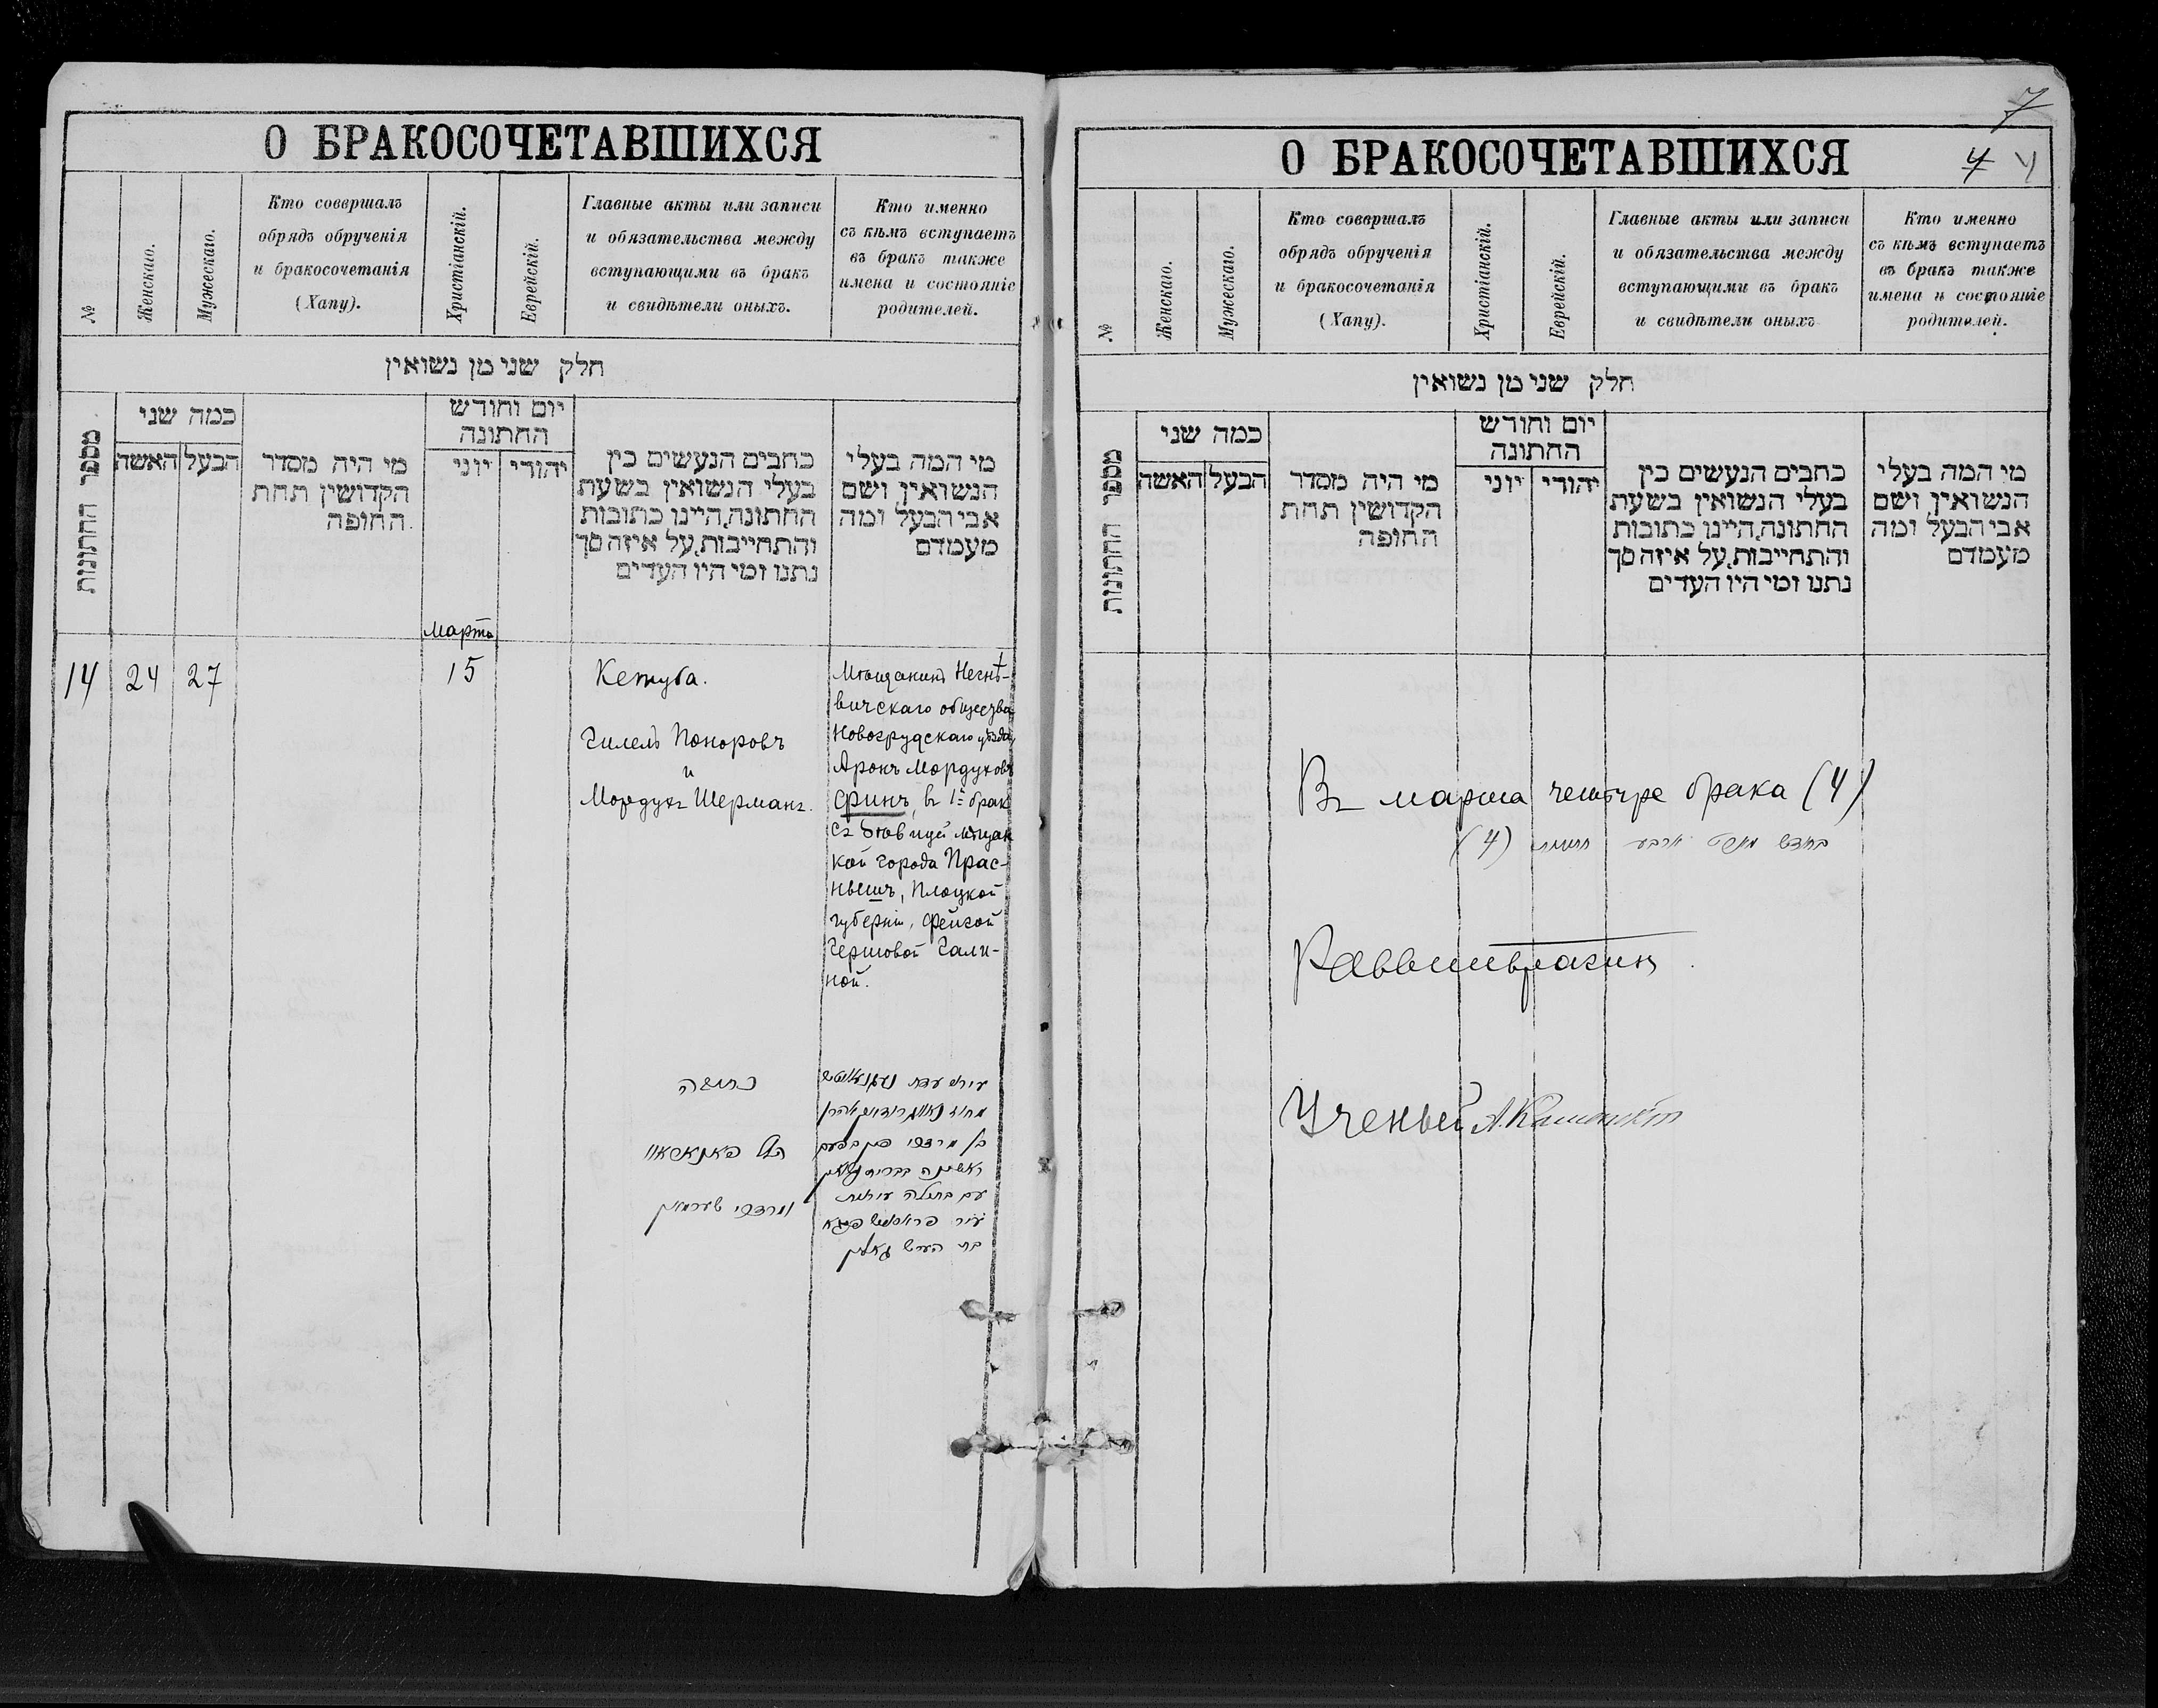 О БРАКОСОЧЕТАВШИХСЯ
№
Женскаго.
Мужескаго.
Кто совершалъ
обрядъ обрученія
и бракосочетанія
(Хапу).
Христіанскій.
Еврейскій.
Главные акты или записи
и обязательства между
вступающими въ бракъ
и свидѣтели оныхъ.
Кто именно
съ кѣмъ вступаетъ
въ бракъ также
имена и состояніе
родителей.
חלק שני מן נשואין
מספר החתונות
כמה שני
האשה
הבעל
מי היה מסדר
הקדושין תחת
החופה.
יום וחודש
החתונה
יוני
יהודי
כתבים הנעשים בין
בעלי הנשואין בשעת
החתונה, היינו כתובות
והתחייבות, על איזה סך
נתנו ומי היו העדים
מי המה בעלי
הנשואין, ושם
אבי הבעל ומה
מעמדם
Марта
14 24 27 15
Кетуба.
Гилель Поноровъ
и
Мордухъ Шерманъ.
Мѣщанинъ Негнѣ-
вичскаго общества
Новогрудскаго уѣзда,
Аронъ Мордуховъ
Финъ, въ 1й бракъ
съ дѣвицей мѣщан
кой города Прас-
нышъ, Плоцкой
губерніи, Фейгой
Гершовой Гали-
ной.
כתובה
הלל
ומרדכי שערמאן
בן מרדכי
עם בתולה
עיר
בת הערש גאלין
7
4 4
О БРАКОСОЧЕТАВШИХСЯ
№
Женскаго.
Мужескаго.
Кто совершалъ
обрядъ обрученія
и бракосочетанія
(Хапу).
Христіанскій.
Еврейскій.
Главные акты или записи
и обязательства между
вступающими въ бракъ
и свидѣтели оныхъ
Кто именно
съ кѣмъ вступаетъ
въ бракъ также
имена и состояніе
родителей.
חלק שני מן נשואין
מספר החתונות
כמה שני
האשה
הבעל
מי היה מסדר
הקדושין תחת
החופה
יום וחודש
החתונה
יוני
יהודי
כתבים הנעשים בין
בעלי הנשואין בשעת
החתונה, היינו כתובות
והתחייבות, על איזה סך
נתנו ומי היו העדים
מי המה בעלי
הנשואין, ושם
אבי הבעל ומה
מעמדם
Въ марта четыре брака (4)
בחדש מארט ארבע חתונות (4)
Раввинъ
Ученый